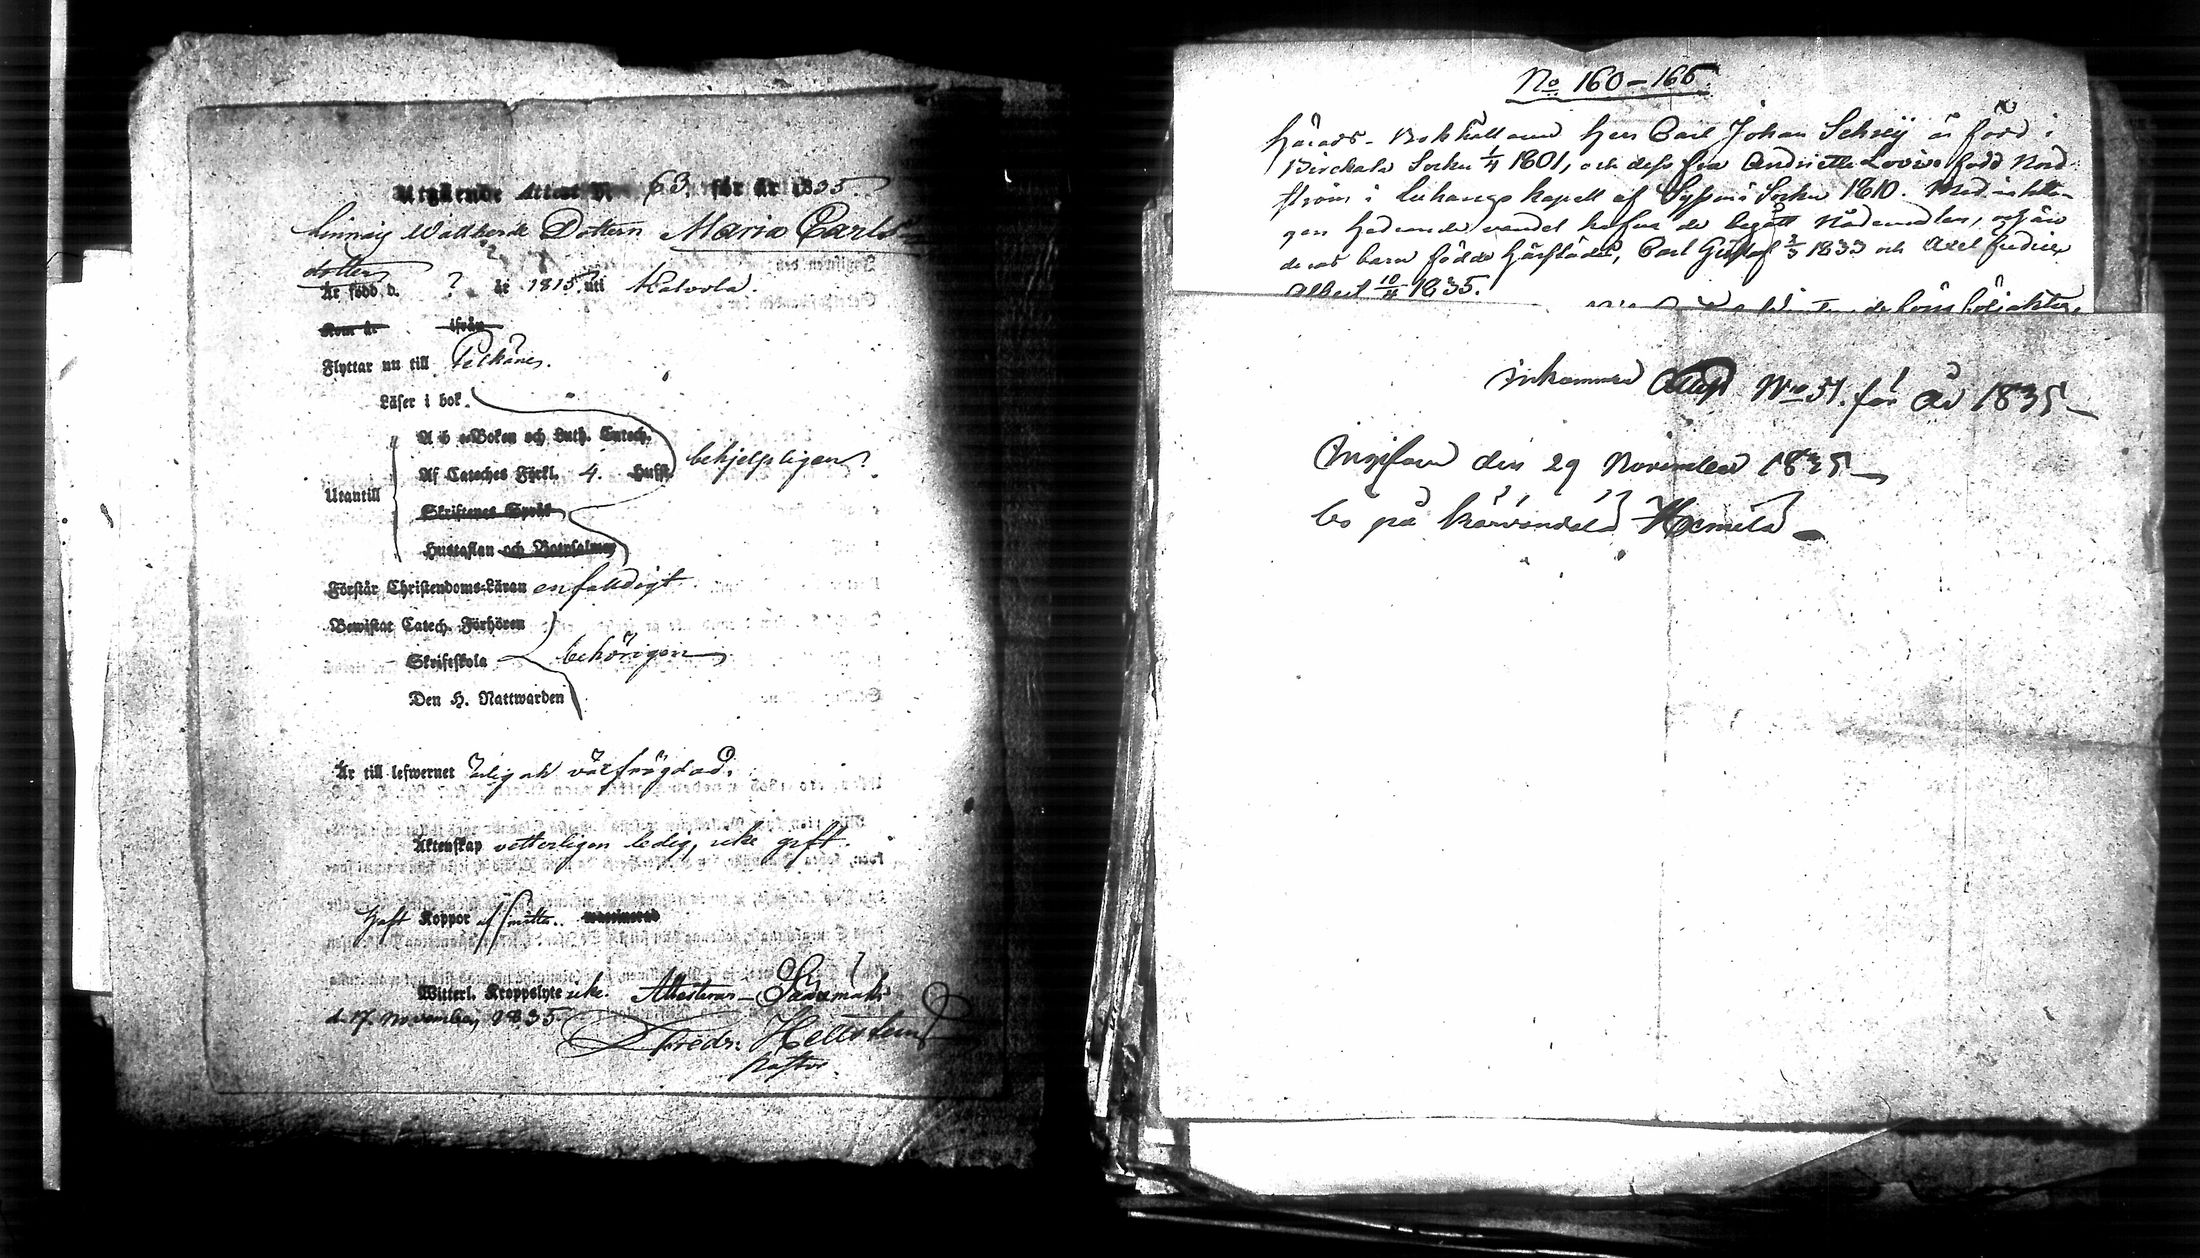 Utgående Attest No 63. för år 1835.
Dottern Maria Carls
dotter
Är född d. ? år 1815. uti Kalvola.
Kom år ifrån
Flyttar nu till Pelkäne.
Läser i bok.
A b c-Boken och Luth. Catech.
Af Cateches Förkl. 4. Hufst. behjelpligen.
Utantill
Skriftenes Språk
Hustaflan och Botpsalmer
Förstår Christendoms-Läran enfaldigt
Bewistat Catech. Förhören
Skriftskola behörigen
Den H. Nattwarden
Är till lefwernet välfrägdad.
Äktenskap vetterligen ledig, icke gift.
Haft Koppor af smitta. waccinerad
Witterl. Kroppslyte icke. Attesterar Sääxmäki
d. 17. November 1835.
Fredr. Hellsten
Pastor.
No 160-166
Härads-Bokhållaren Herr Carl Johan Schrey är född i
Birckala Socken 1/4 1801, och dess fru Andriette Lovisa född Nord
ström i Luhango kapell af Sysmä Socken 1810. Med
gen hedrande vandel hafva de begått Nådemedlen, och äro
deras barn födde härstädes, Carl Gustaf 2/3 1833 och Axel Fredric
Albert 10/4 1835.
Inkommen Attest No 51. för År 1835
Ingifven den 29 November 1835
bo på Hemilä